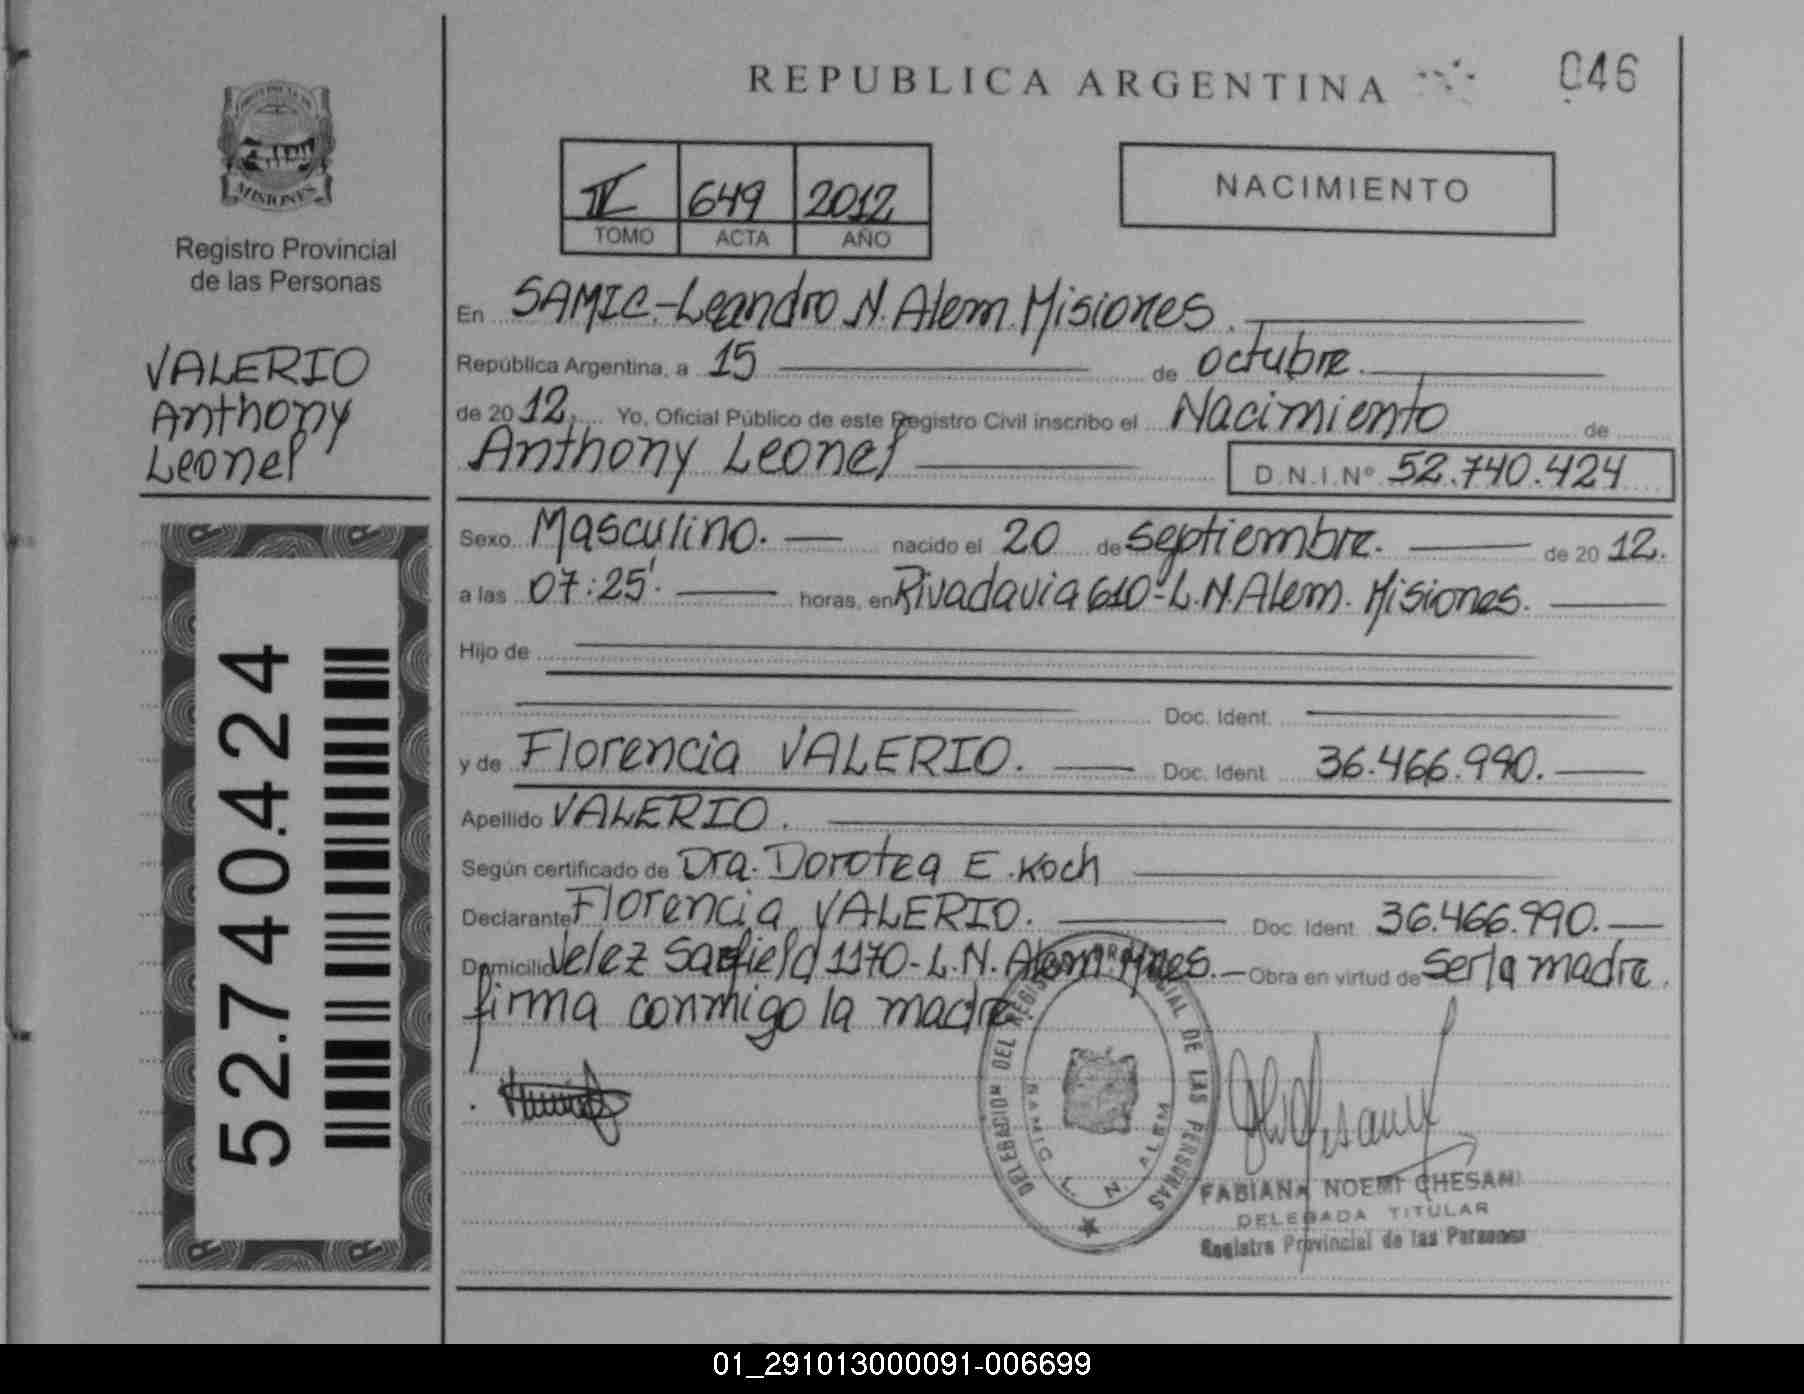 REPUBLICA ARGENTINA
046
MISIONES
Registro Provincial
de las Personas
VALERIO
Anthony
Leonel
52.740.424
IV 649 2012
TOMO ACTA AÑO
NACIMIENTO
En SAMIC.-Leandro N. Alem. Misiones.
República Argentina, a 15 de octubre.
de 2012. Yo, Oficial Público de este Registro Civil inscribo el Nacimiento de
Anthony Leonel D.N.I.Nº 52.740.424
Sexo Masculino. nacido el 20 de septiembre. de 2012.
a las 07:25'. horas, en Rivadavia 610-L.N.Alem. Misiones.
Hijo de
Doc. Ident.
y de Florencia VALERIO. Doc. Ident. 36.466.990.
Apellido VALERIO.
Según certificado de Dra. Dorotea E. Koch
Declarante Florencia VALERIO. Doc. Ident. 36.466.990.
Domicilio Velez Sarfield 1170-L.N. Alem. Mnes. Obra en virtud de Ser la madre.
firma conmigo la madre
DELEGACION DEL REGISTRO PROVINCIAL DE LAS PERSONAS
SAMIC L. N. ALEM
FABIANA NOEMI CHESANI
DELEGADA TITULAR
Registro Provincial de las Personas
01_291013000091-006699